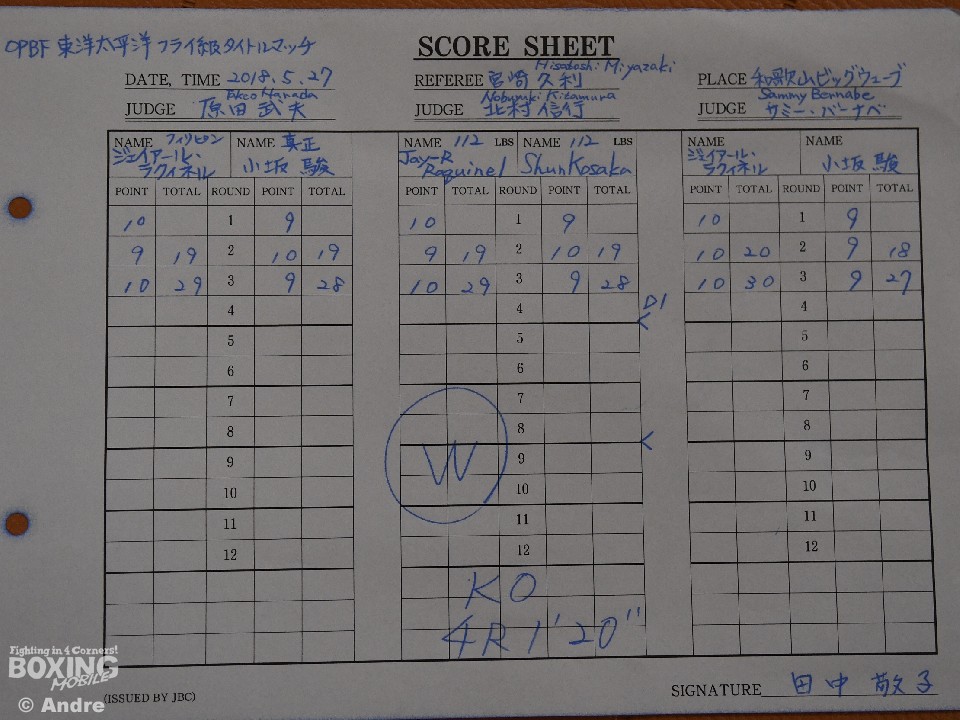 OPBF 東洋太平洋 フライ級タイトルマッチ
SCORE SHEET
Hisatoshi Miyazaki
DATE, TIME 2018.5.27 REFEREE 宮崎久利 PLACE 和歌山ビッグウェーブ
Nobuyuki Kitamura Sammy Bernabe
JUDGE 原田武夫 JUDGE 北村信行 JUDGE サミー・バーナベ
NAME フィリピン NAME 真正 NAME 112 LBS NAME 112 LBS NAME NAME
ジェイアール・ラクィネル 小坂 駿 Jay-R Raquinel Shun Kosaka ジェイアール・ラクィネル 小坂 駿
POINT TOTAL ROUND POINT TOTAL POINT TOTAL ROUND POINT TOTAL POINT TOTAL ROUND POINT TOTAL
10 1 9 10 1 9 10 1 9
9 19 2 10 19 9 19 2 10 19 10 20 2 9 18
10 29 3 9 28 10 29 3 9 28 10 30 3 9 27
4 4 D1 4
5 5 5
6 6 6
7 7 7
8 8 8
9 W 9 9
10 10 10
11 11 11
12 12 12
KO
4R 1'20"
(ISSUED BY JBC) SIGNATURE 田中敬子
Fighting in 4 Corners!
BOXING
MOBILE
© Andre